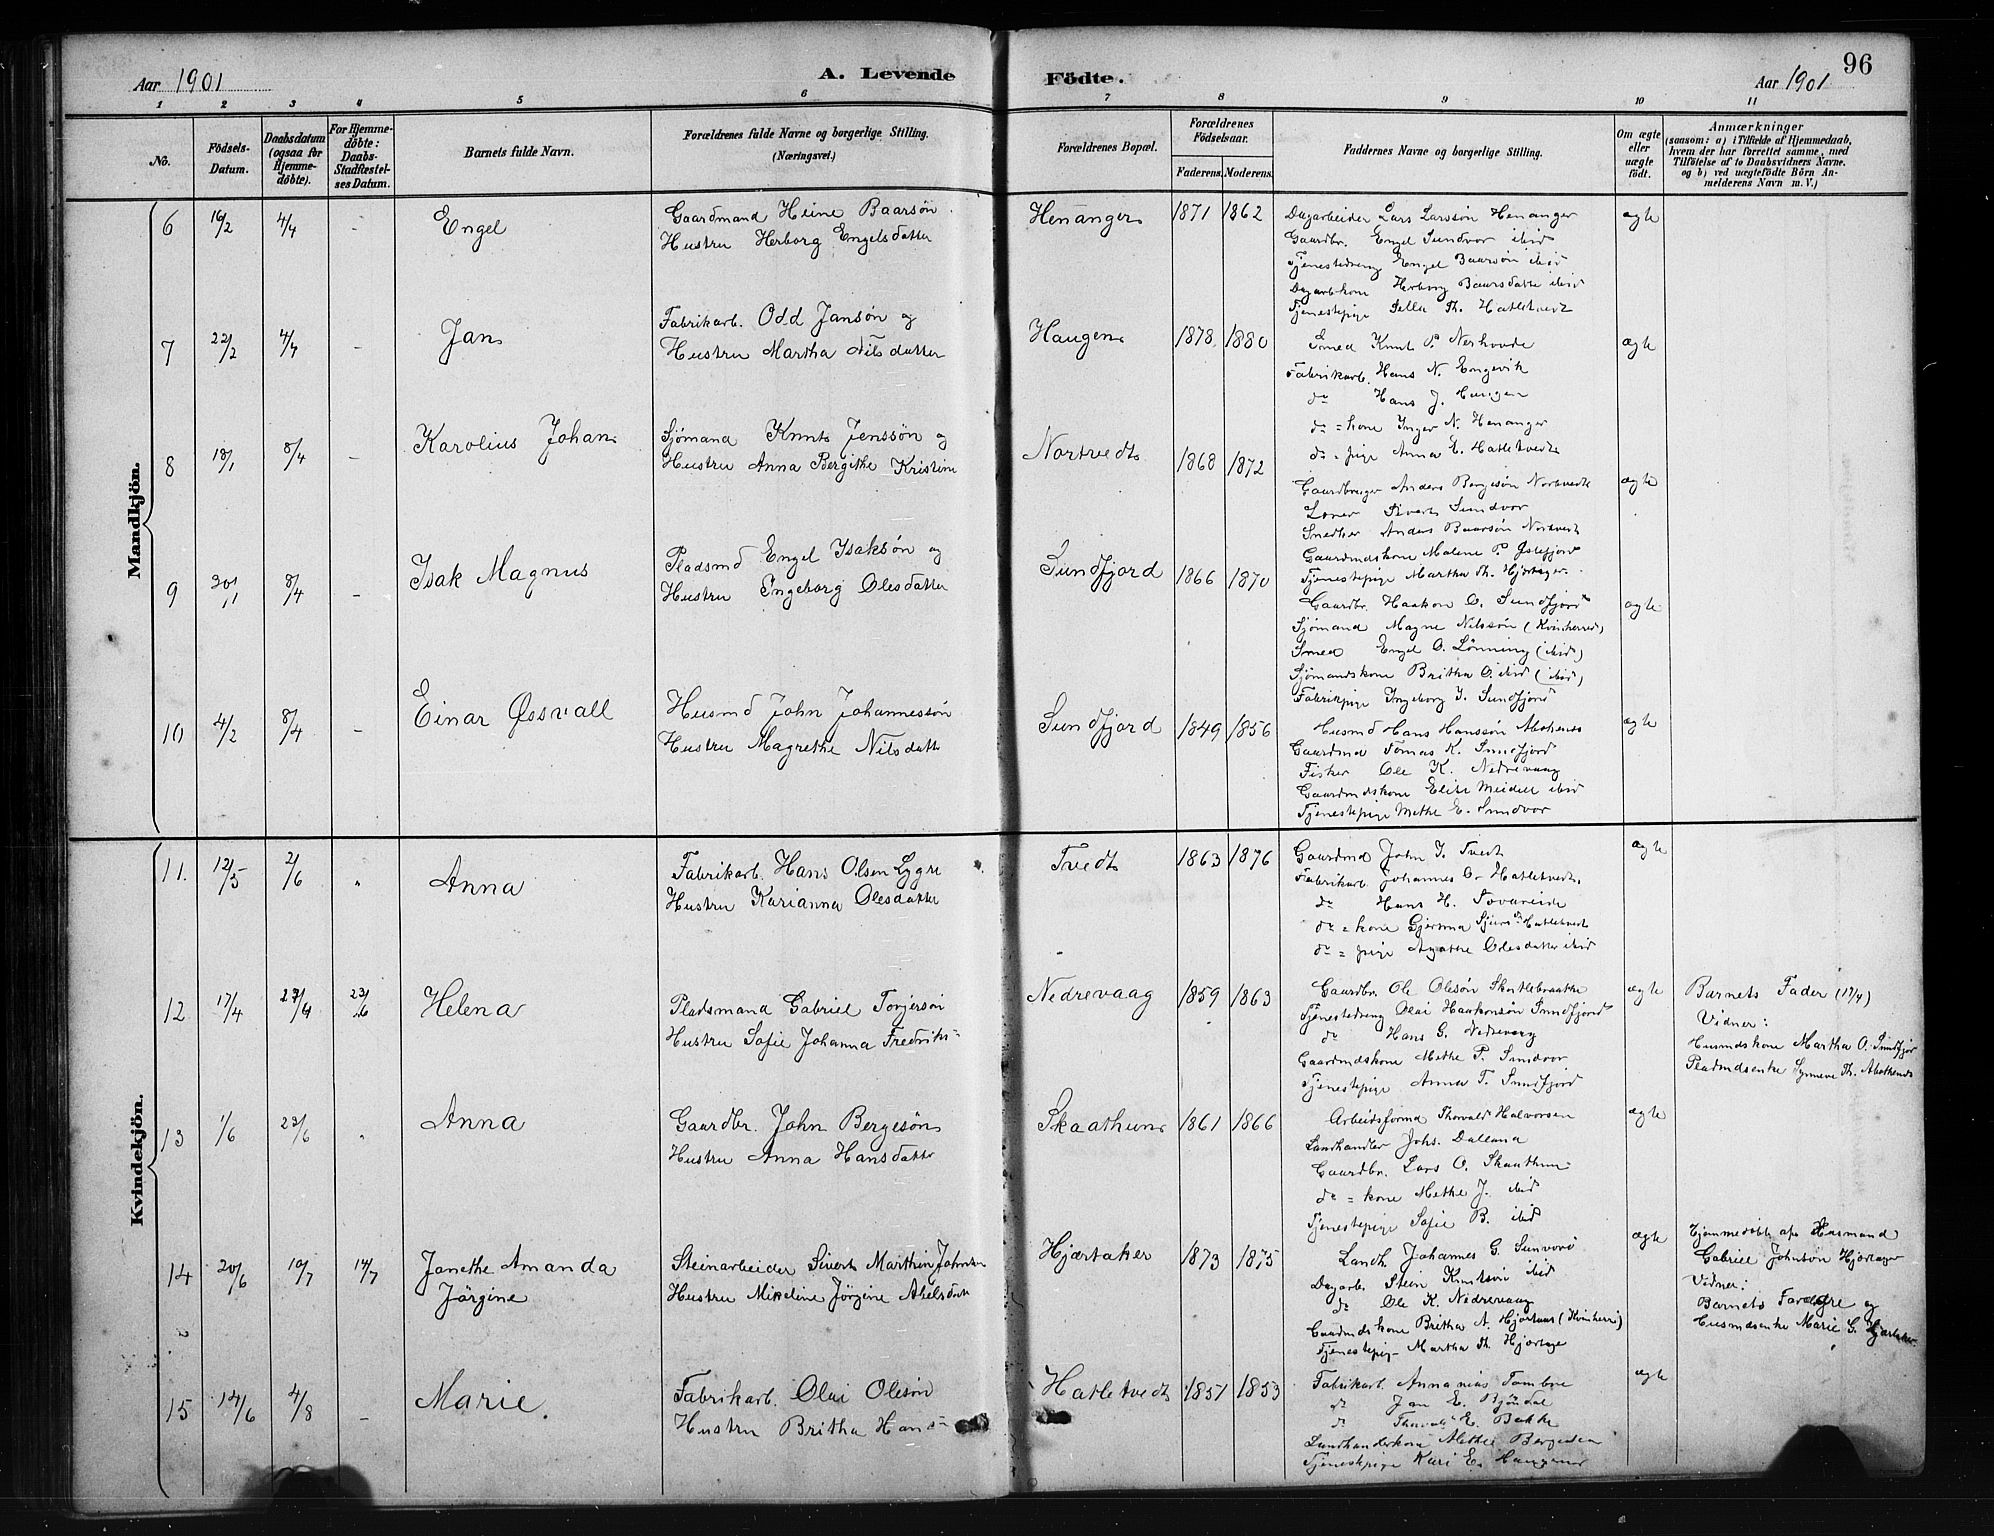 96
Aar 1901
A. Levende Födte.
Aar 1901
1 2 3 4 5 6 7 8 9 10 11
No.
Födsels-Datum.
Daabsdatum (ogsaa for Hjemme-döbte).
For Hjemme-döbte: Daabs-Stadfæstel-ses Datum.
Barnets fulde Navn.
Forældrenes fulde Navne og borgerlige Stilling. (Næringsvei.)
Forældrenes Bopæl.
Forældrenes Födselsaar.
Faderens. Moderens.
Faddernes Navne og borgerlige Stilling.
Om ægte eller uægte födt.
Anmærkninger
(saasom: a) i Tilfælde af Hjemmedaab,
hvem der har forrettet samme, med
Tilföielse af to Daabsvidners Navne,
og b) ved uægtefödte Börn An-
melderens Navn m. V.)
Mandkjön.
6 16/2 4/4 - Engel
Gaardmand Heine Baarsön
Hustru Herborg Engelsdatter
Henanger 1871 1862
Dagarbeider Lars Larssön Henanger
Gaardbr. Engel Sundvor ibid
Tjenestedreng Engel Baarsön ibid
Dagarbkone Herborg Baarsdatter ibid
Tjenestepige Sella Th. Hatletvedt
ægte
7 22/2 4/4 - Jan
Fabrikarb. Odd Jansön og
Hustru Martha Nilsdatter
Haugen 1878 1880
Smed Knut P. Nerhovde
Fabrikarb. Hans N. Engevik
do Hans J. Haugen
do = kone Inger N. Henanger
do = pige Anna E. Hatletvedt
ægte
8 18/1 8/4 - Karolius Johan
Sjömand Knut Jenssön og
Hustru Anna Bergithe Kristine
Nortvedt 1868 1872
Gaardbruger Anders Bergesön Nortvedt
Losner Sivert Sundvor
Snedker Anders Baarsön Nortvedt
Gaardmdskone Malene P. Østefjord
Tjenestepige Martha Th. Hjortager
ægte
9 20/11 8/4 - Isak Magnus
Pladsmd Engel Isaksön og
Hustru Ingeborg Olesdatter
Sundfjord 1866 1870
Gaardbr. Haakon O. Sundfjord
Sjömand Magne Nilssön (Kvinherred)
Smed Engel O. Lönning (ibid)
Sjömandskone Britha O. ibid (ibid)
Fabrikpige Ingeborg I. Sundfjord
ægte
10 4/2 8/4 - Einar Øssvall
Husmd John Johannessön
Hustru Magrethe Nilsdatter
Sundfjord 1849 1856
Husmd Hans Hanssön Abothenes
Gaardmd Tomas K. Sundfjord
Fisker Ole K. Nedrevaag
Gaardmdskone Elise Meidell ibid
Tjenestepige Methe E. Sundvor
ægte
Kvindekjön.
11. 12/5 2/6 " Anna
Fabrikarb. Hans Olsen Lygre
Hustru Karianna Olesdatter
Tvedt 1863 1876
Gaardmd John J. Tvedt
Fabrikarb. Johannes O. Hatletvedt
do Hans H. Tovareide
do = kone Gjertina Sjursdr Hatletvedt
do = pige Agathe Olesdatter ibid
ægte
12 17/4 27/4 23/6 Helena
Pladsmand Gabriel Torjersön
Hustru Sofie Johanna Fredriks=
Nedrevaag 1859 1863
Gaardbr. Ole Olesön Skartlebraathe
Tjenestedreng Olai Haakonsön Sundfjord
do Hans G. Nedrevaag
Gaardmdskone Methe P. Sundvor
Tjenestepige Anna T. Sundfjord
ægte
Barnets Fader (17/4)
Vidner:
Husmdskone Martha O. Sundfjor
Pladsmdsenke Synneve Th. Abothenes
13 1/6 23/6 " Anna
Gaardbr. John Bergesön
Hustru Anna Hansdatter
Skaathun 1861 1866
Arbeidsformd Thorvald Halvorsen
Landhandler Johs. Dallena
Gaardbr. Lars O. Skaathun
do = kone Methe J. ibid
Tjenestepige Sofie B. ibid
ægte
14 20/6 10/7 14/7 Janethe Amanda Jörgine
Steinarbeider Sivert Marthin Johnsen
Hustru Mikeline Jörgine Akselsdatt
Hjærtaker 1873 1875
Landh. Johannes G. Sunvord
Dagarb. Stein Knutsön ibid
do Ole K. Nedrevaag
Gaardmdskone Britha A. Hjortaas (Kvinherr)
Tjenestepig- Martha Th. Hjortage
ægte
Hjemmedöbt af Husmand
Gabriel Johnsön Hjortager
Vidner:
Barnets Forældre og
Husmdsenke Marie G. Hjærtaker
15 14/6 4/8 - Marie.
Fabrikarb. Olai Olesön
Hustru Britha Hans=
Hatletvedt 1851 1853
Fabrikarb. Annanias Tombre
do Jan E. Bjöndal
do Thorvald E. Bakke
Landhandlerkone Alethe Bergesen
Tjenestepige Kari E. Haugene
ægte